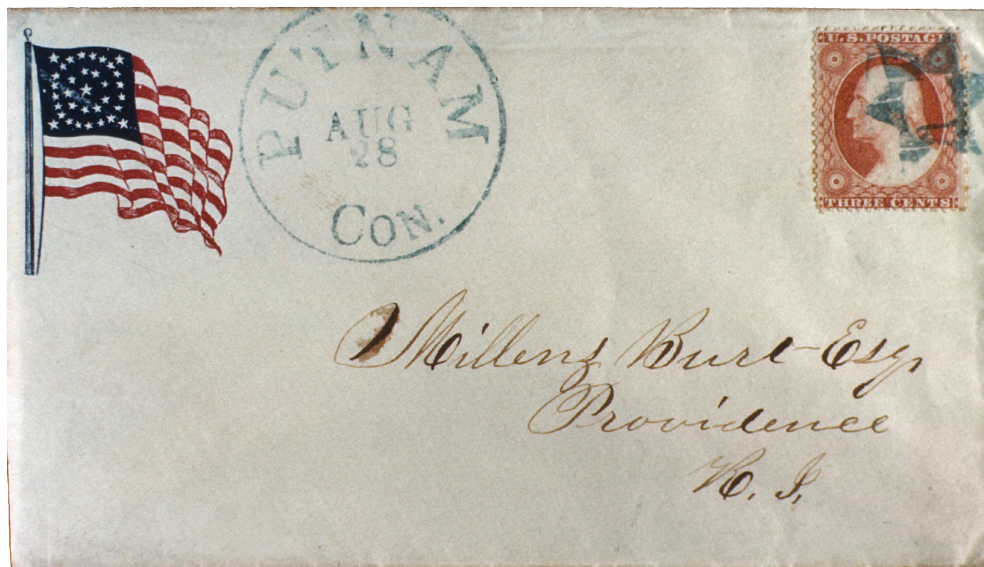 PUTNAM
AUG
28
CON.
U.S. POSTAGE
THREE CENTS
Burt Esq
Providence
R. I.